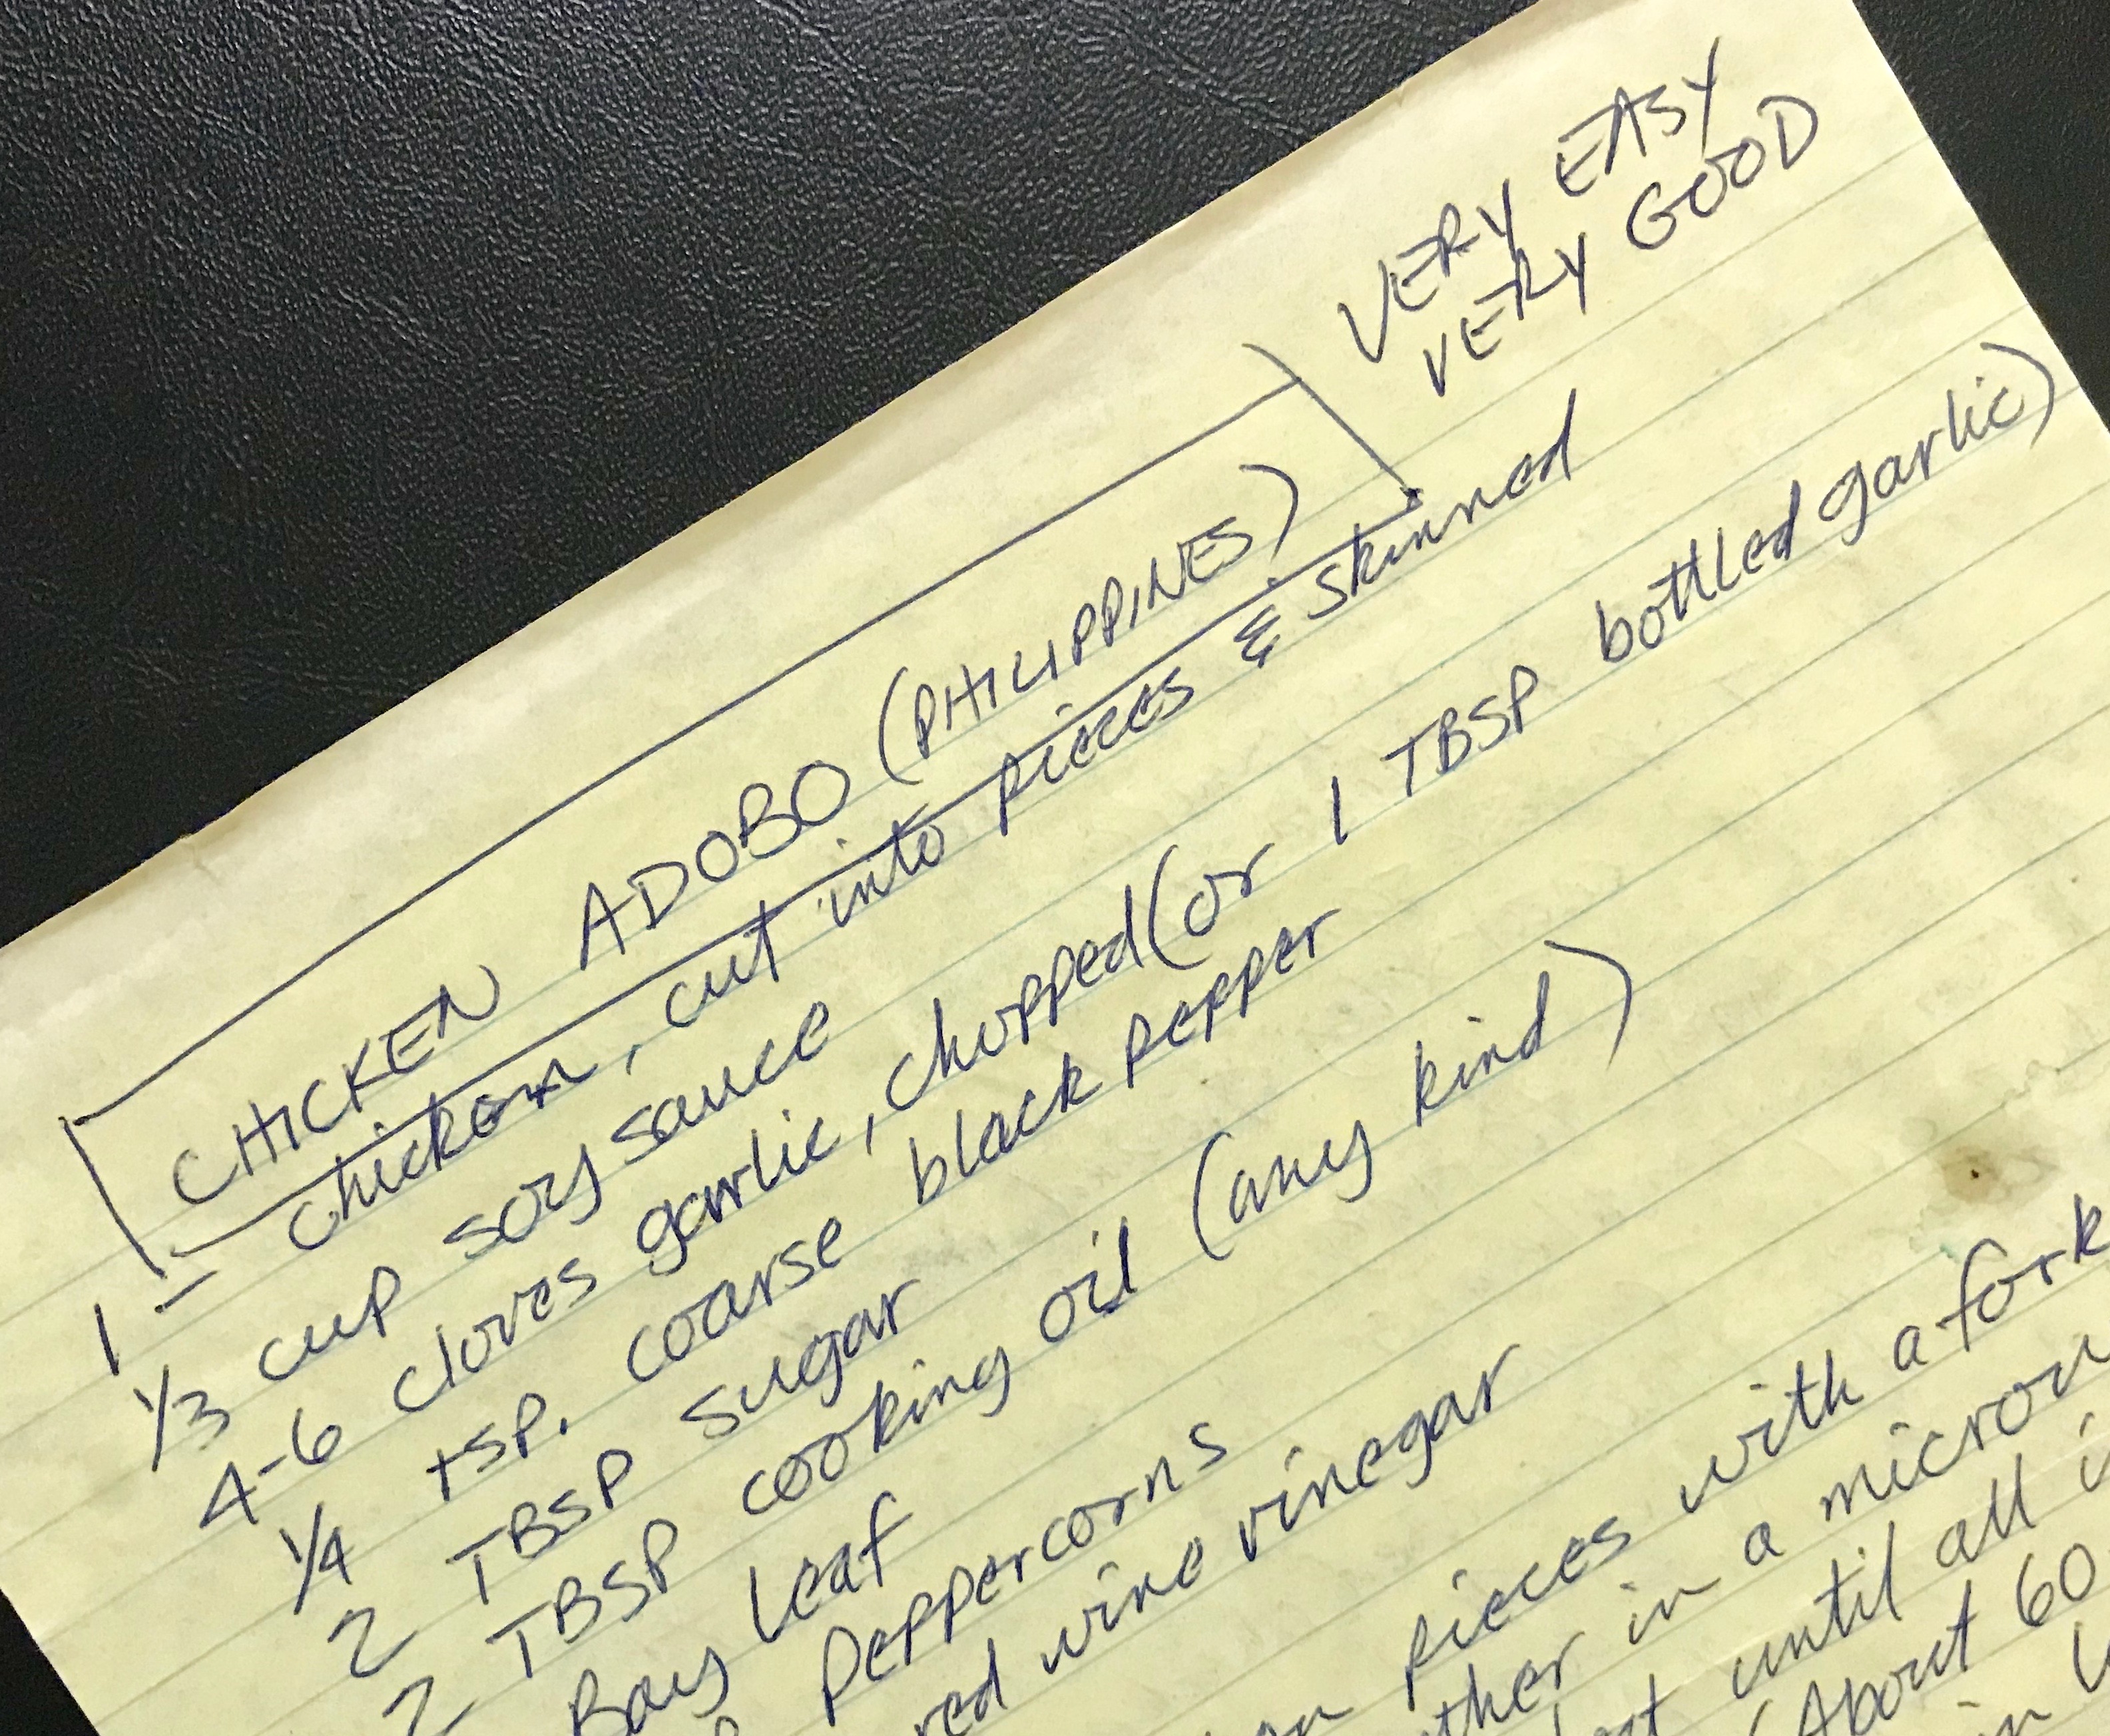 VERY EASY
VERY GOOD
CHICKEN ADOBO (PHILIPPINES)
1 - chicken, cut into pieces & skinned
1/3 cup soy sauce
4-6 cloves garlic, chopped (or 1 TBSP bottled garlic)
1/4 tsp. coarse black pepper
2 TBSP sugar
2 TBSP cooking oil (any kind)
Bay leaf
Peppercorns
red wine vinegar
pieces with a fork
in a
until all
(About 60
in